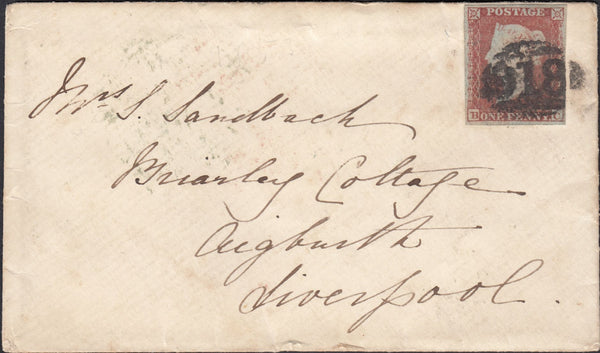 POSTAGE
918
ONE PENNY
Mrs S. Sandbach
Briarley Cottage
Aigburth
Liverpool.